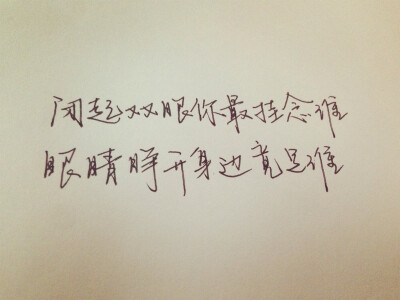 闭起双眼你最挂念谁
眼睛睁开身边竟是谁